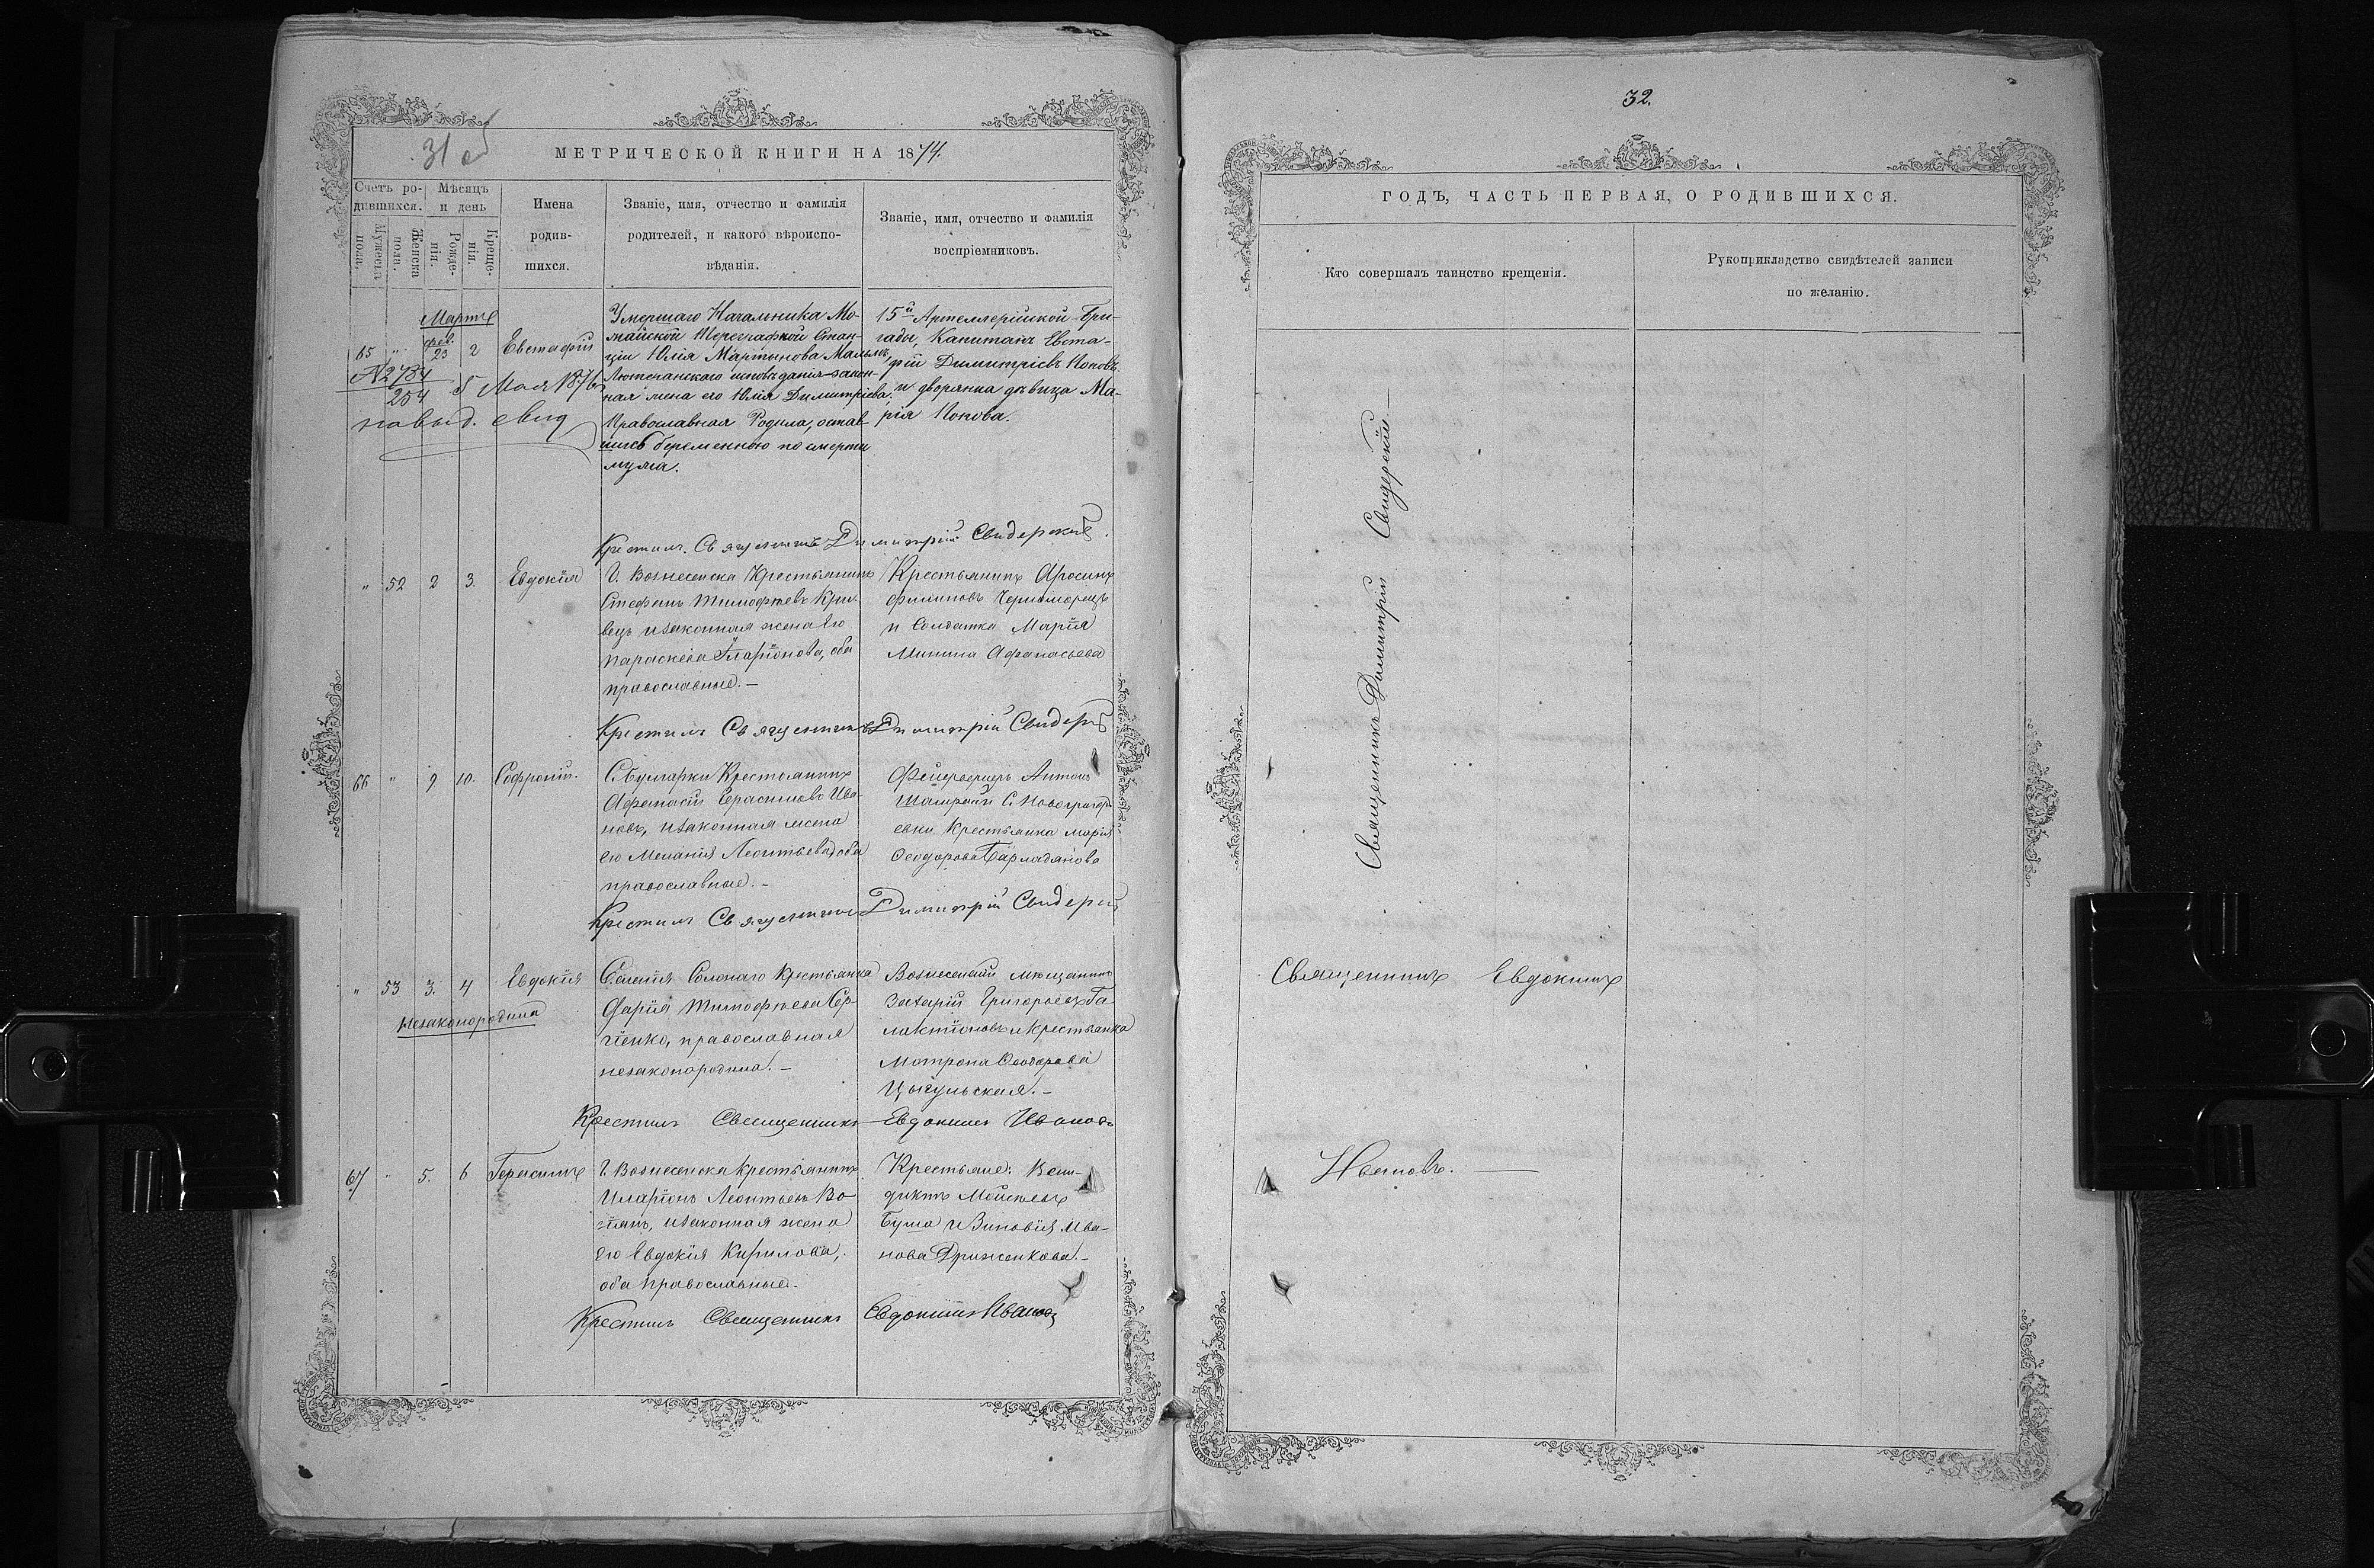 31 об
МЕТРИЧЕСКОЙ КНИГИ НА 1874.
Счетъ ро-
дившихся.
Мѣсяцъ
и день
Мужеска
пола.
Женска
пола.
Рожде-
нія.
Креще-
нія.
Имена
родив-
шихся.
Званіе, имя, отчество и фамилія
родителей, и какого вѣроиспо-
вѣданія.
Званіе, имя, отчество и фамилія
воспріемниковъ.
Мартъ
65 " фев. 23 2 Евстафій
№ 2784
254 5 Мая 1876
на выд. свид
Умершаго Начальника Мо-
Стан-
ціи Юлія Мартынова
Лютеранскаго исповѣданія закон-
ная жена его Юлія Димитріева,
Православная Родила, остав-
шись беременною по смерти
мужа.
15й Артиллерійской Бри-
гады, Капитанъ Евста-
фій Димитріевъ Поповъ
и дворянка дѣвица Ма-
рія Попова.
Крестилъ Священникъ Димитрій Свидерскій.
" 52 2 3. Евдокія
Г. Вознесенска Крестьянинъ
Стефанъ Тимофѣевъ Кри-
вецъ изаконная жена его
Параскева Иларіонова, оба
православные.—
Крестьянинъ
Филиповъ Черноморецъ
и Солдатка Марія
Минина Афанасьева
Крестилъ Священникъ Димитрій Свидерскій
66 " 9 10. Софроній.
С. Булгарки Крестьянинъ
Афанасій Герасимовъ Ива-
новъ, изаконная жена
его Меланія Леонтьева, оба
православные.—
Фейерверкеръ Антонъ
С. Новогригорь-
евки Крестьянка Марія
Ѳеодорова Барладянова
Крестилъ Священникъ Димитрій Свидерскій
" 53 3. 4 Евдокія
незаконородна
Селенія Солонаго Крестьянка
Дарія Тимофѣева Сер-
гіенко, православная
незаконородила.—
Вознесенскій мѣщанинъ
Захарій Григорьевъ Га-
лактіоновъ и Крестьянка
Матрона Ѳеодорова
Цыгульская.—
Крестилъ Священникъ Евдокимъ Ивановъ
67 " 5. 6 Герасимъ
Г. Вознесенска крестьянинъ
Иларіонъ Леонтьевъ Во-
гіянъ, изаконная жена
его Евдокія Кирилова,
оба православные.
Крестьяне: Вени-
диктъ Моисеевъ
Бума и Зиновія Ива-
нова Дриженкова.—
Крестилъ Священникъ Евдокимъ Ивановъ
32.
ГОДЪ, ЧАСТЬ ПЕРВАЯ, О РОДИВШИХСЯ.
Кто совершалъ таинство крещенія.
Рукоприкладство свидѣтелей записи
по желанію.
Священникъ Димитрій Свидерскій.—
Священникъ Евдокимъ
Ивановъ. —